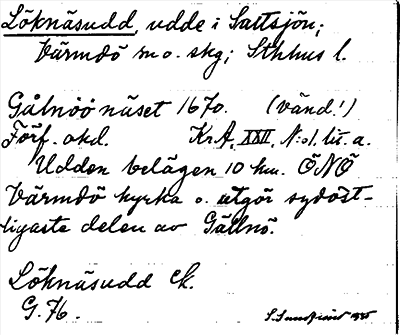 Löknäsudd, udde i Saltsjön;
Värmdö sn o. skg; Sthlms l.
Gålnöö näset 1670. (vänd!)
Förf. okd. KrA, XXII, N:o 1. lit. a.
Udden belägen 10 km. ÖNÖ
Värmdö kyrka o. utgör sydöst-
ligaste delen av Gällnö.
Löknäsudd ek.
G. 76.